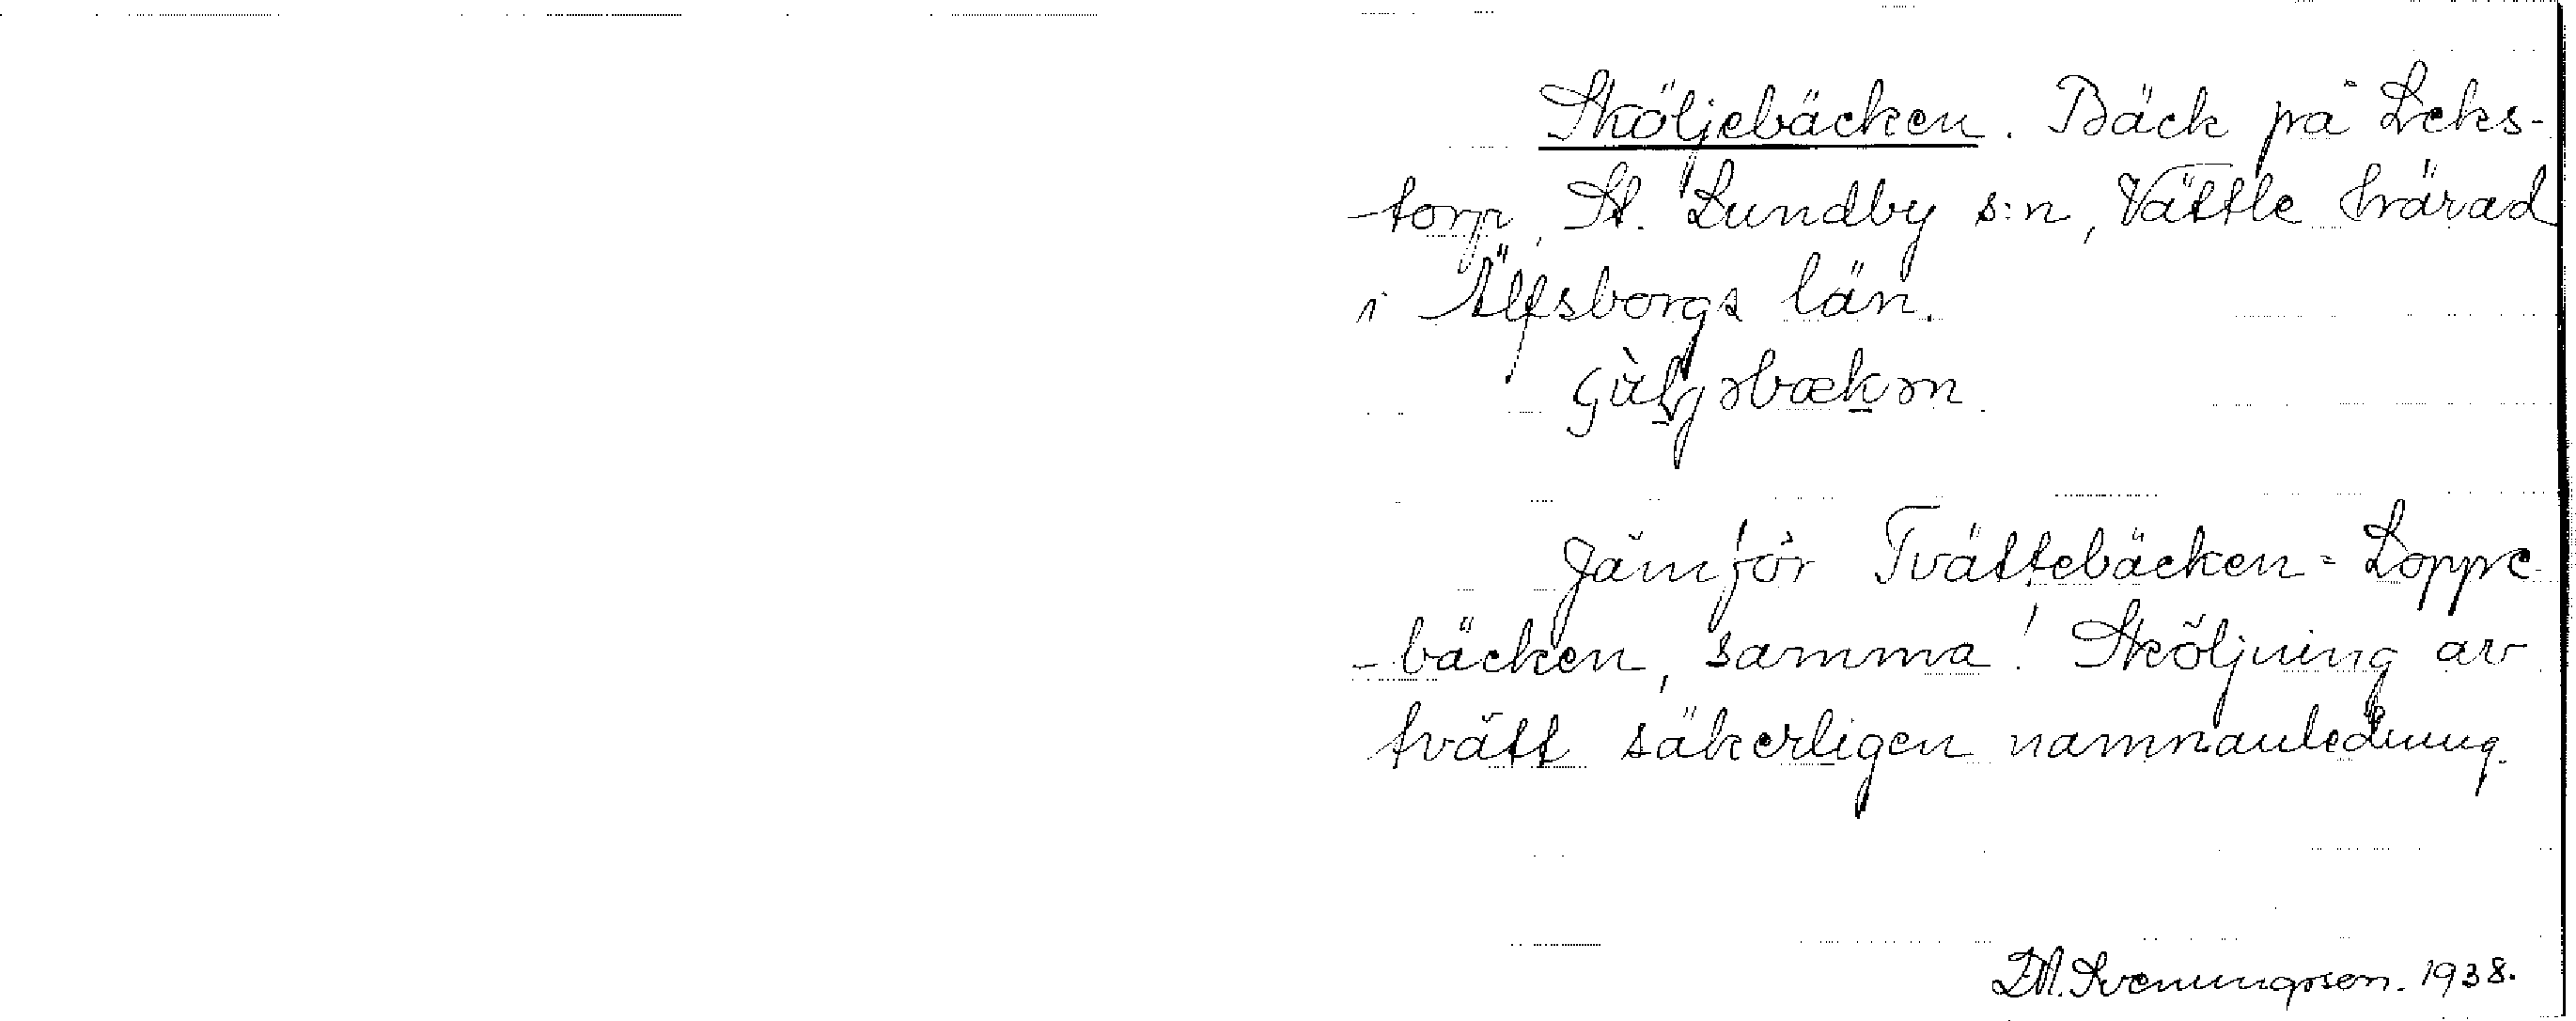 Sköljebäcken. Bäck på Leks-
-torp, St. Lundby s:n, Vättle härad
i Älfsborgs län.
Jämför Tvättebäcken = Loppe-
-bäcken, samma! Sköljning av
tvätt säkerligen namnanledning.
Svenungsson. 1938.